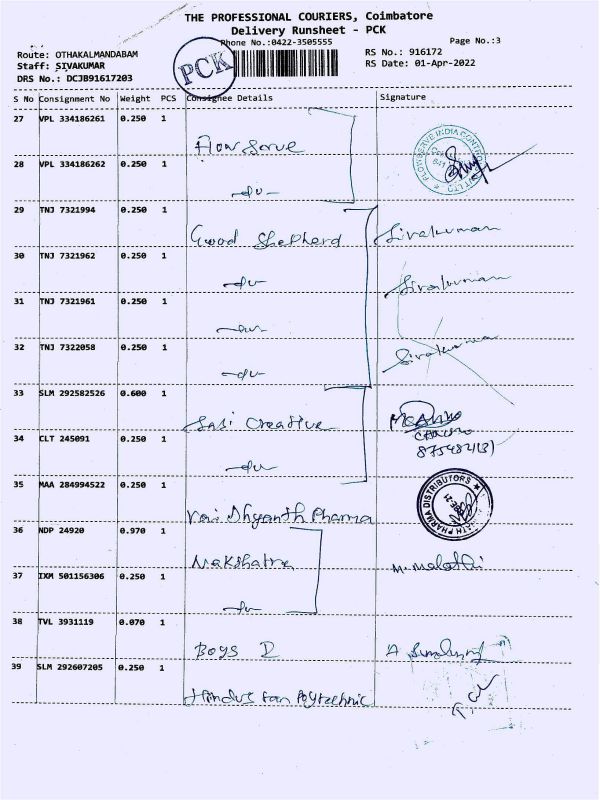 THE PROFESSIONAL COURIERS, Coimbatore
Delivery Runsheet - PCK
Phone No.:0422-3505555
Page No.:3
Route: OTHAKALMANDABAM
Staff: SIVAKUMAR
DRS No.: DCJB91617203
PCK
RS No.: 916172
RS Date: 01-Apr-2022
S No Consignment No Weight PCS Consignee Details Signature
27 VPL 334186261 0.250 1 Flow Serve
28 VPL 334186262 0.250 1 -do-
FLOWSERVE INDIA CONTROLS
29 TNJ 7321994 0.250 1 Good Shepherd Sivakumar
30 TNJ 7321962 0.250 1 -do- Sivakumar
31 TNJ 7321961 0.250 1 -do-
32 TNJ 7322058 0.250 1 -do- Sivakumar
33 SLM 292582526 0.600 1 Sasi Creative
34 CLT 245091 0.250 1 -do-
35 MAA 284994522 0.250 1 Vai Shyanth Pharma
PHARMA DISTRIBUTORS
36 NDP 24920 0.970 1 Nakshatra M. Malathi
37 IXM 501156306 0.250 1 -do-
38 TVL 3931119 0.070 1 Boys D
39 SLM 292607205 0.250 1 Hindustan Polytechnic